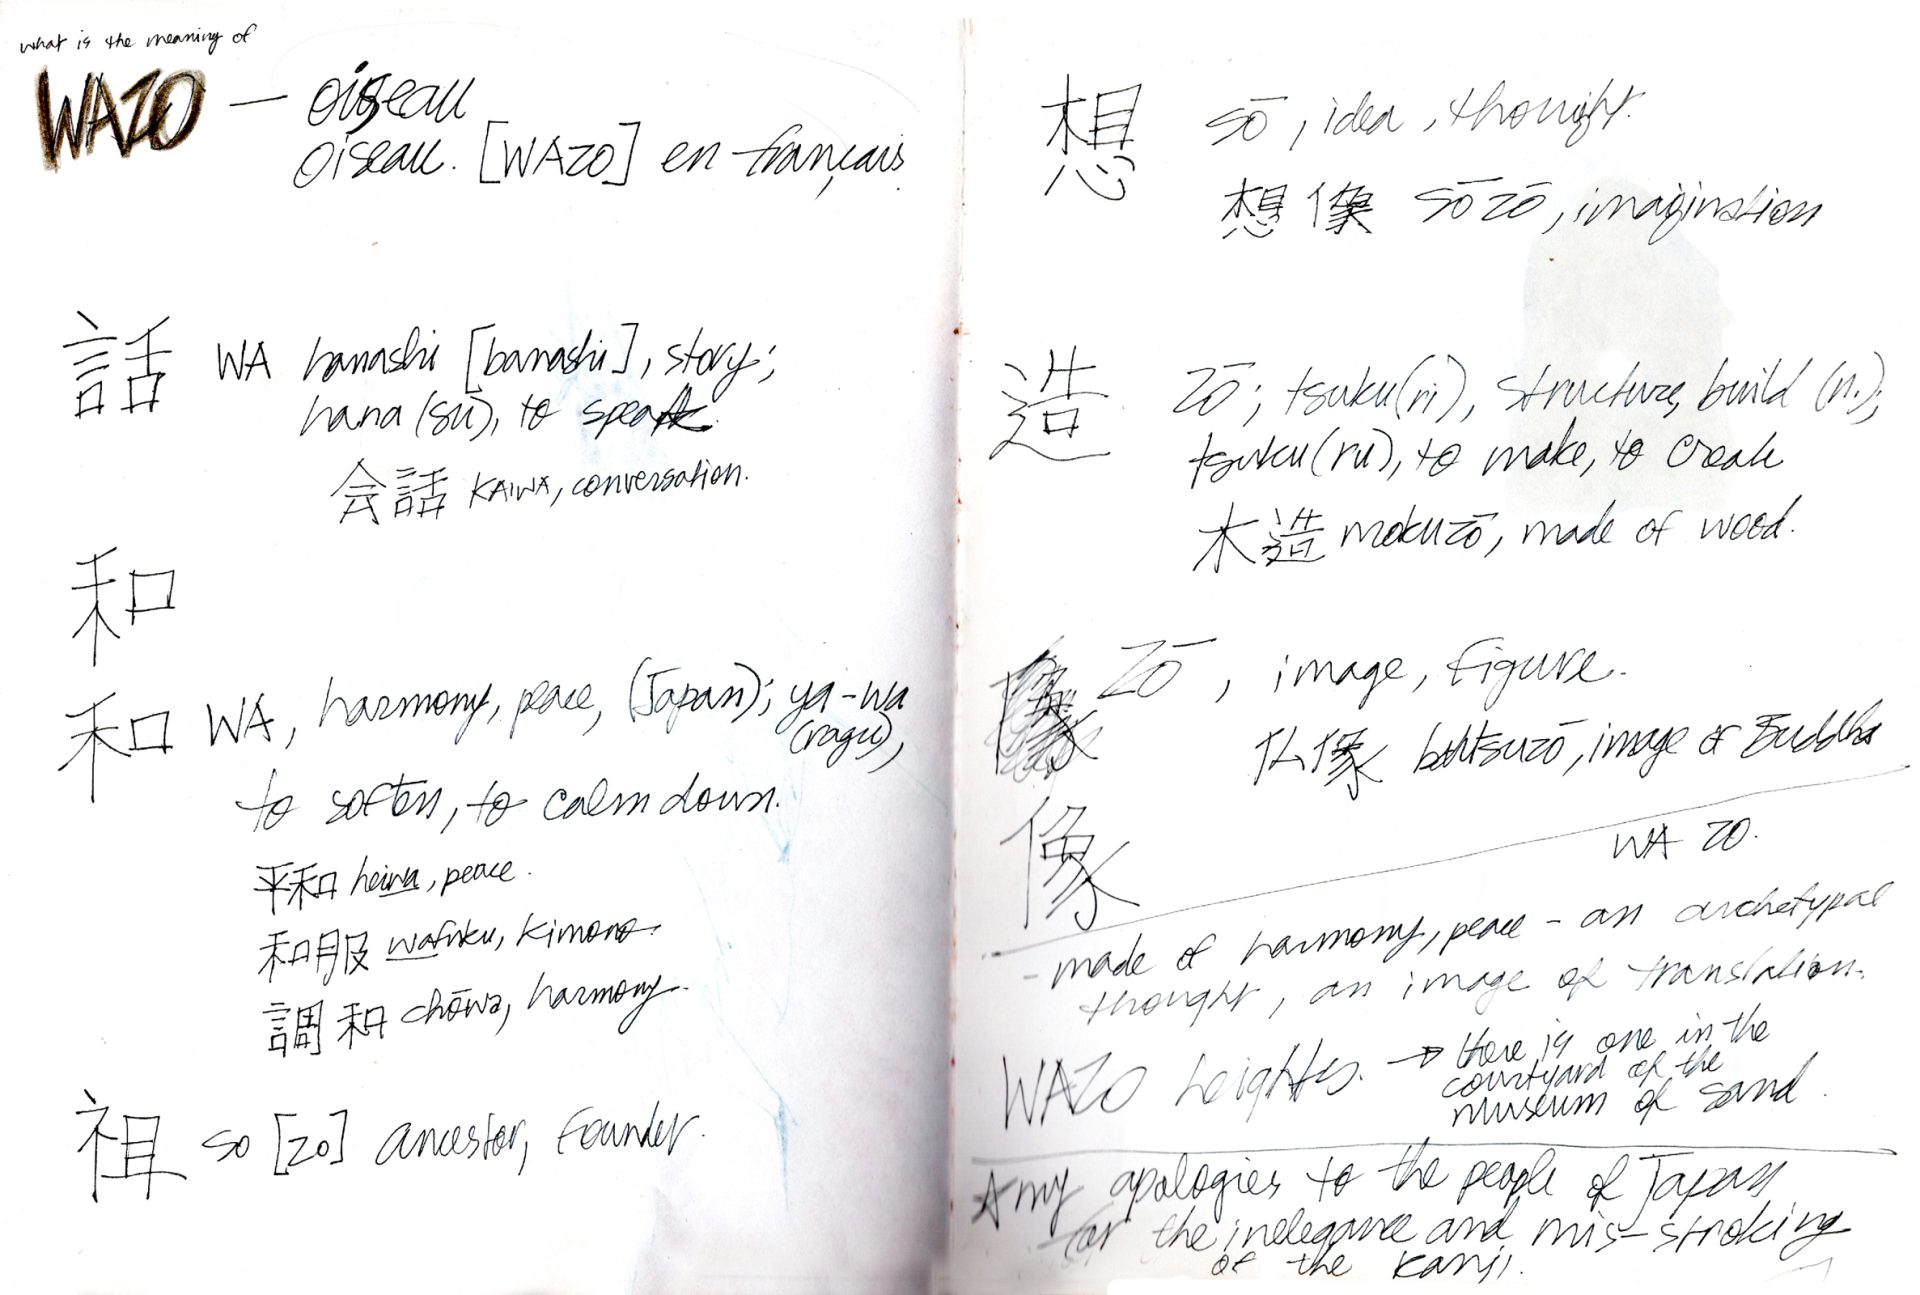 what is the meaning of
WAZO — oiseau
oiseau. [WAZO] en français
話 WA hanashi [banashi], story;
hana(su), to speak
会話 KAIWA, conversation.
和
和 WA, harmony, peace, (Japan); ya-wa
(ragu),
to soften, to calm down.
平和 heiwa, peace.
和服 wafuku, kimono.
調和 chōwa, harmony.
祖 so [zo] ancestor, founder.
想 sō, idea, thought.
想像 sōzō, imagination
造 zō; tsuku(ri), structure, build (n.);
tsuku(ru), to make, to create
木造 mokuzō, made of wood.
像 zō, image, figure.
仏像 buhtsuzō, image of Buddha
像
WA ZO.
- made of harmony, peace - an archetypal
thought, an image of translation.
WAZO heights. → there is one in the
courtyard of the
museum of sand.
☆ my apologies to the people of Japan
for the inelegance and mis-stroking
of the kanji.